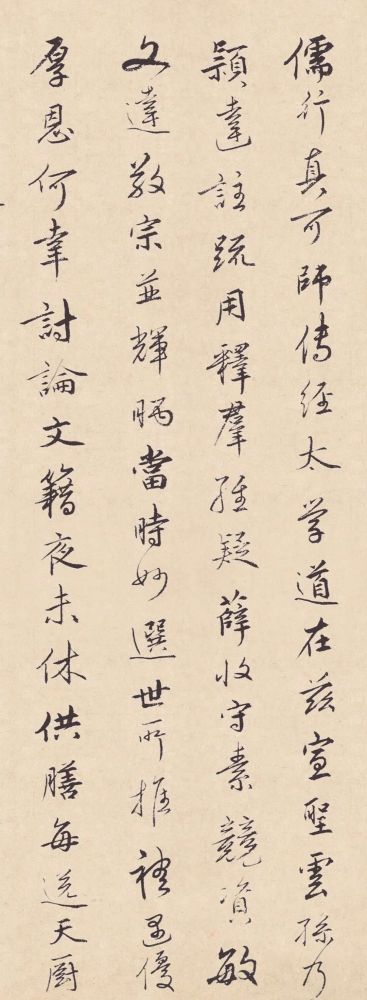 儒行真可師傳經太学道在兹宣聖雲孫乃
頴達註疏用釋羣經疑薛收守素競資敏
文達敬宗並輝暎當時妙選世所推禮遇優
厚恩何幸討論文籍夜未休供膳每送天厨